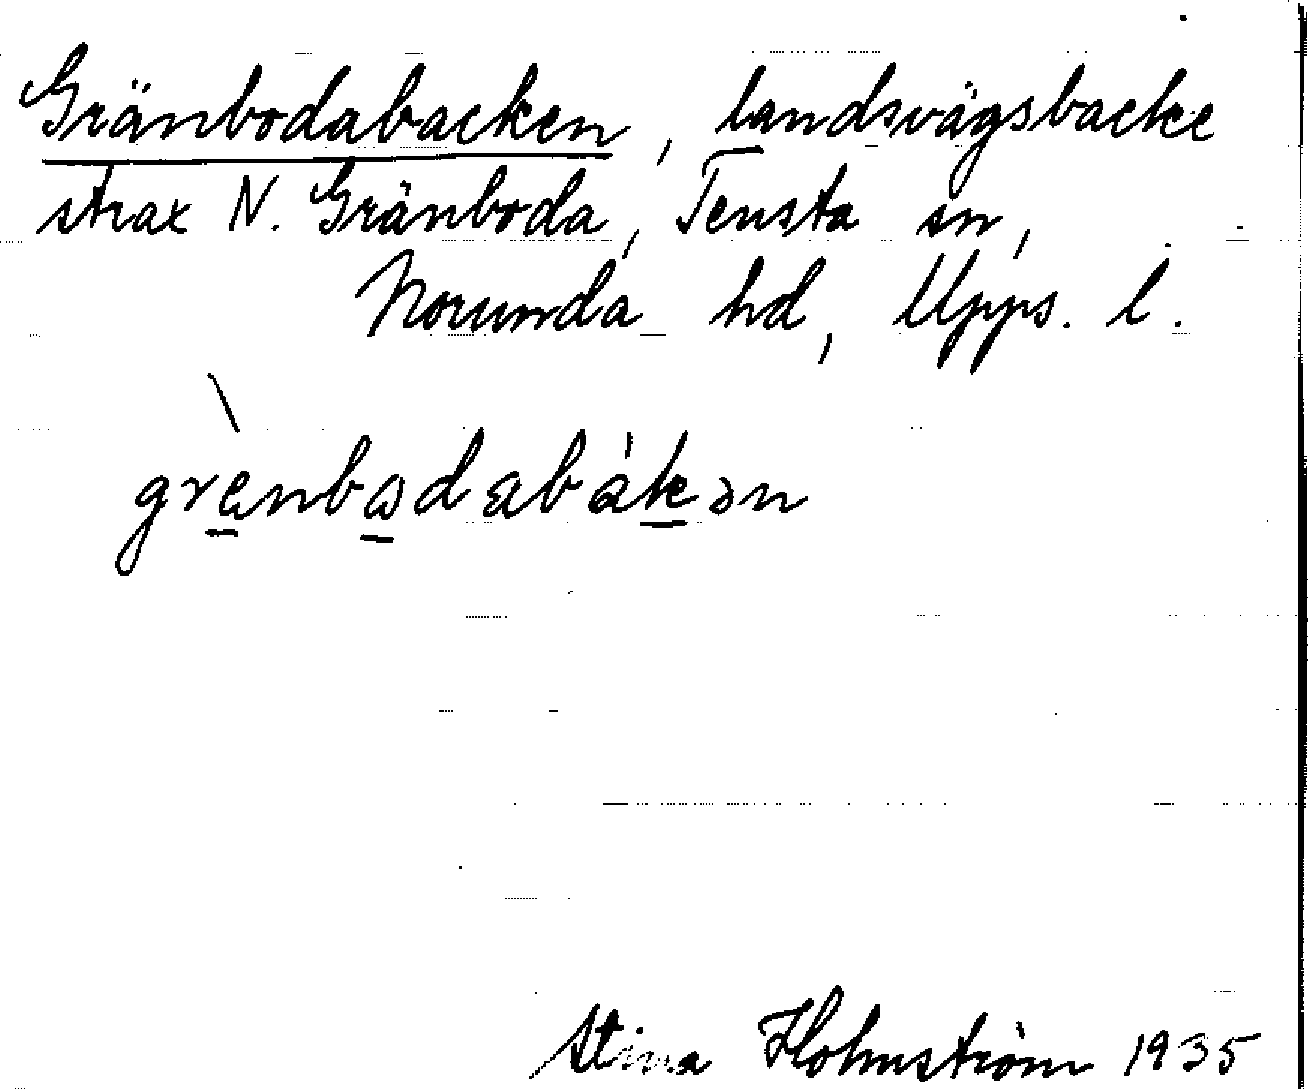 Gränbodabacken, landsvägsbacke
strax N. Gränboda, Tensta sn,
Norunda hd, Upps. l.
grènbωdabákən
Stina Holmström 1935